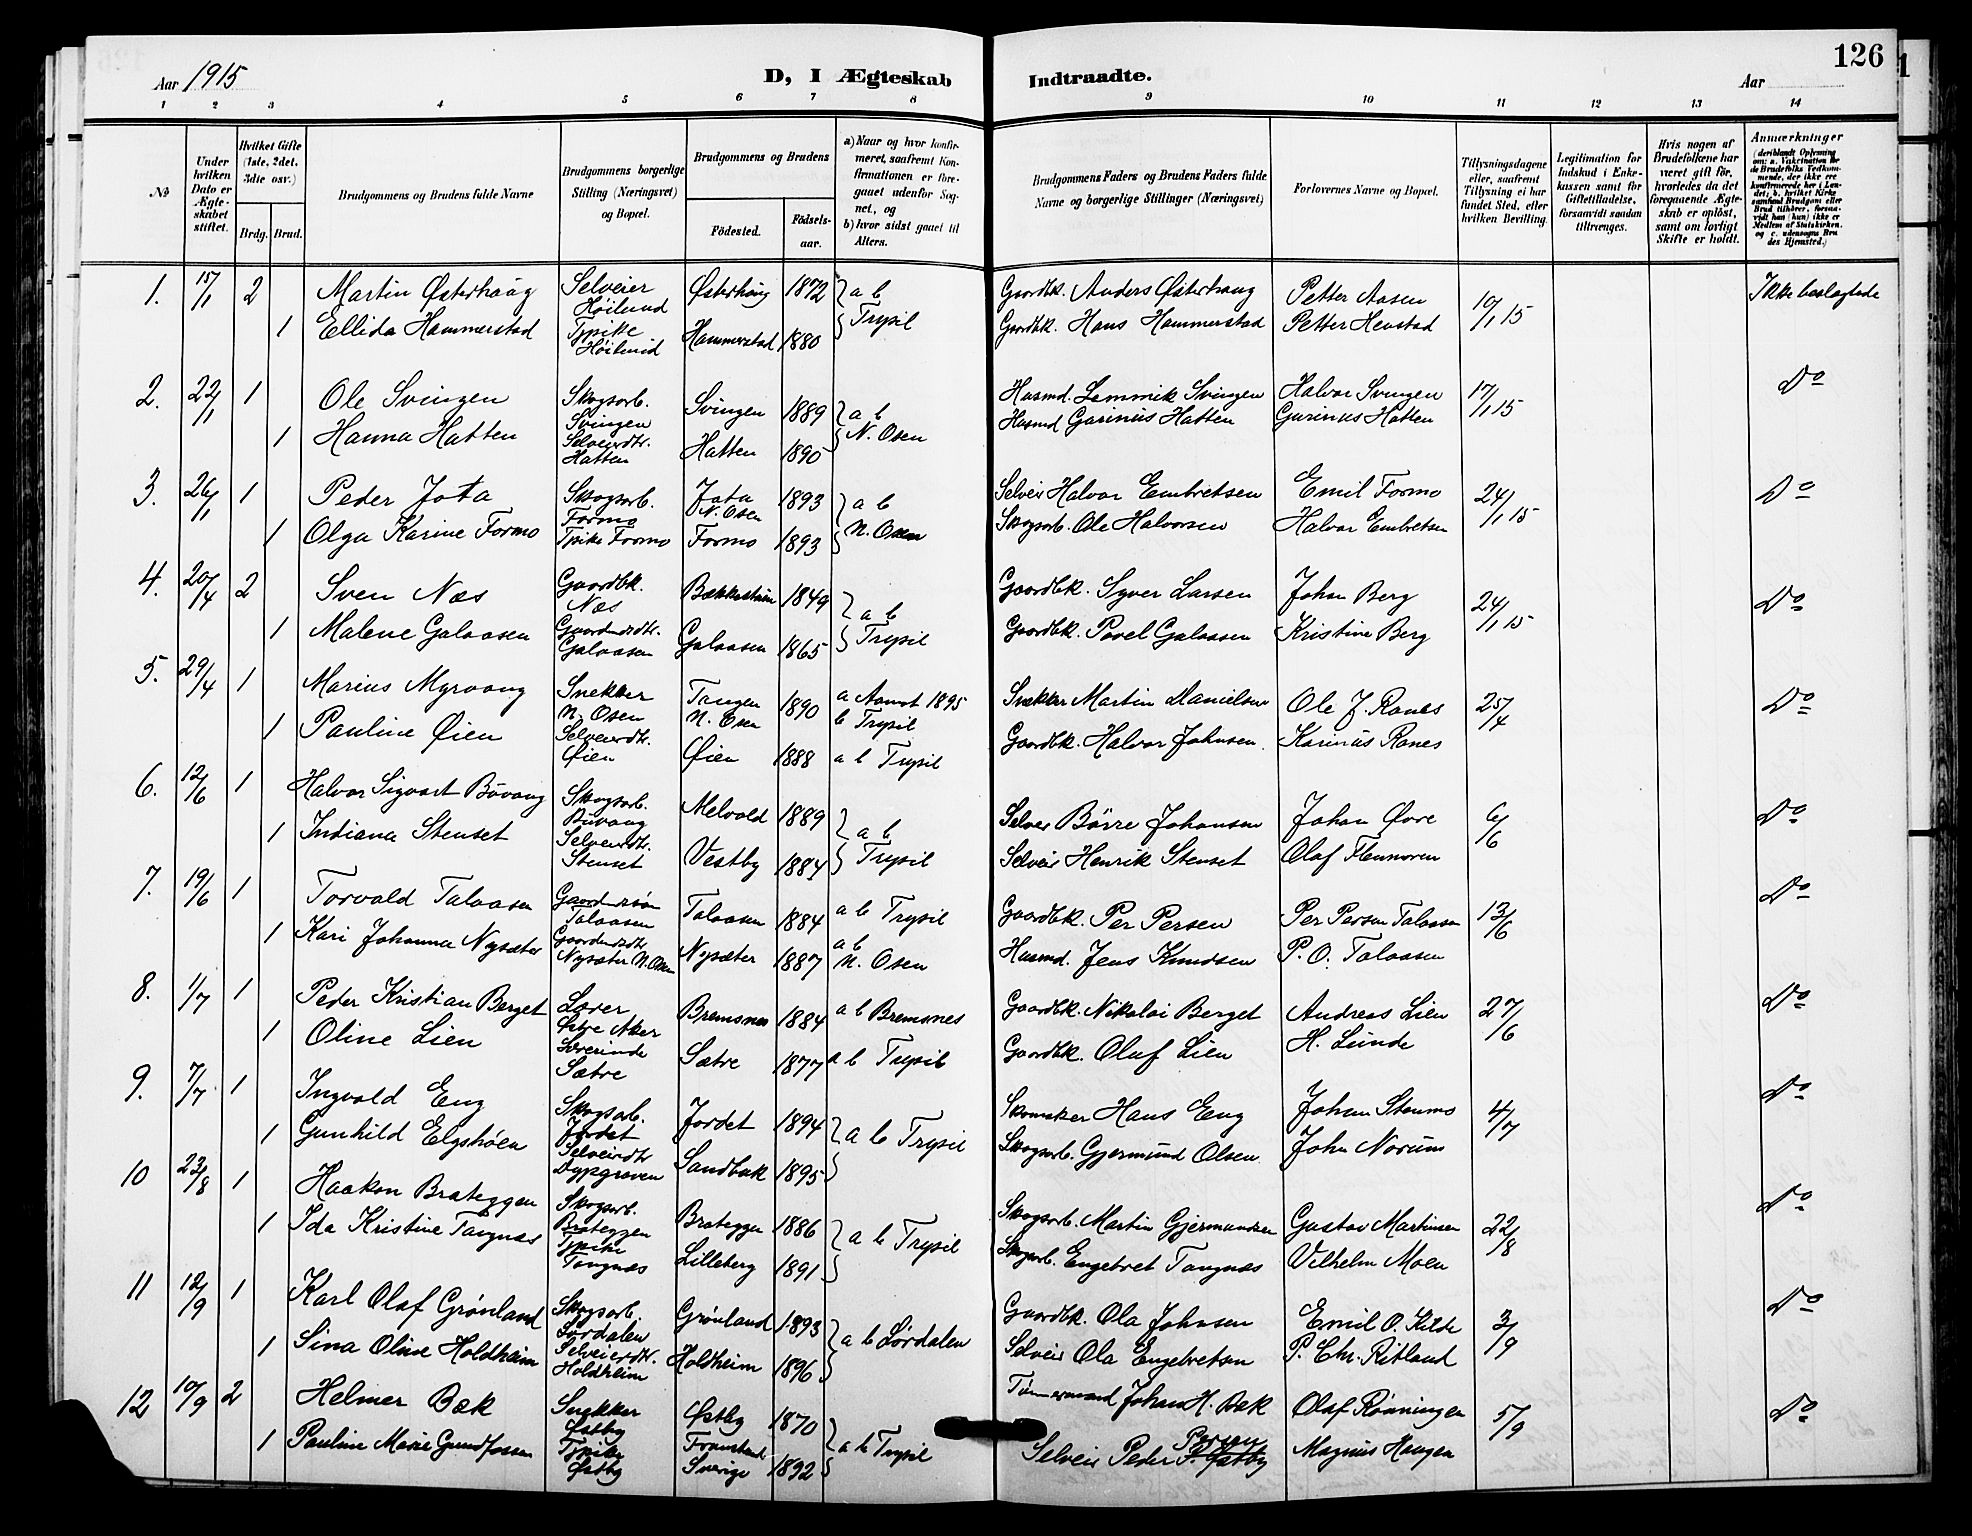 126
Aar 1915
D, I Ægteskab Indtraadte.
Aar
1 2 3 4 5 6 7 8 9 10 11 12 13 14
No
Under hvilken Dato er Ægteskabet stiftet.
Hvilket Gifte (1ste, 2det, 3die osv.)
Brdg. Brud.
Brudgommens og Brudens fulde Navne
Brudgommens borgerlige Stilling (Næringsvei) og Bopæl.
Brudgommens og Brudens
Fødested.
Fødselsaar.
a) Naar og hvor konfirmeret, saafremt Konfirmationen er foregaaet udenfor Sognet, og
b) hvor sidst gaaet til Alters.
Brudgommens Faders og Brudens Faders fulde Navne og borgerlige Stillinger (Næringsvei)
Forlovernes Navne og Bopæl.
Tillysningsdagene eller, saafremt Tillysning ei har fundet Sted, efter hvilken Bevilling.
Legitimation for Indskud i Enkekassen samt for Giftetilladelse, forsaavidt saadan tiltrænges.
Hvis nogen af Brudefolkene har været gift før, hvorledes da det foregaaende Ægteskab er opløst, samt om lovligt Skifte er holdt.
Anmærkninger
1. 15/1 2 Martin Østerhaug Selveier Høilund Østerhaug 1872 a b Trysil Gaardbk. Anders Østerhaug Petter Aasen 10/1 15 Ikke beslægtede
1 Ellida Hammerstad Tpike Høilund Hammerstad 1880 Gaardbk. Hans Hammerstad Petter Hevstad
2. 22/1 1 Ole Svingen Skogsarb. Svingen Svingen 1889 a b N. Osen Husmd. Lemmik Svingen Halvor Svingen 17/1 15 Do
1 Hanna Hatten Selveierdtr. Hatten Hatten 1890 Husmd Garinus Hatten Garinus Hatten
3. 26/1 1 Peder Jota Skogsarb. Formo Jota N. Osen 1893 a b N. Osen Selveier Halvor Embretsen Emil Formo 24/1 15 Do
1 Olga Karine Formo Tpike Formo Formo 1893 Skogsarb. Ole Halvorsen Halvor Embretsen
4. 20/4 2 Sven Næs Gaardbk. Næs 1849 a b Trysil Gaardbk. Syver Larsen Johan Berg 24/1 15 Do
1 Malene Galaasen Gaardmdtr. Galaasen Galaasen 1865 Gaardbk. Povel Galaasen Kristine Berg
5. 29/4 1 Marius Myrvang Snekker N. Osen Tangen N. Osen 1890 a Aamot 1895 b Trysil Snekker Martin Danielsen Ole J. Ranes 25/4 Do
1 Pauline Øien Selveierdtr. Øien Øien 1888 a b Trysil Gaardbk. Halvor Johnsen. Karinus Ranes
6. 12/6 1 Halvor Sigvart Buvang Skogsarb. Buvang Melvold 1889 a b Trysil Selveier Børre Johansen Johan Øvre 6/6 Do
1 Indiana Stenset Selveierdtr. Stenset Vestby 1884 Selveier Henrik Stenset Olaf Flenmoren
7. 19/6 1 Torvald Talaasen Gaardmdsøn Talaasen Talaasen 1884 a b Trysil Gaardbk. Per Persen Per Persen Talaasen 13/6 Do
1 Kari Johanna Nysæter Gaardmdsdtr. Nysæter N. Osen Nysæter 1887 a b N. Osen Husmd. Jens Knudsen P. O. Talaasen
8. 1/7 1 Peder Kristian Berget Lærer Østre Aker Bremsnes 1884 a b Bremsnes Gaardbk. Nikolai Berget Andreas Lien 27/6 Do
1 Oline Lien Lærerinde Sætre Sætre 1877 a b Trysil Gaardbk. Olaf Lien H. Lunde
9. 7/7 1 Ingvald Eng Skogsarb. Jordet Jordet 1894 a b Trysil Skomaker Hans Eng Johan Stenmo 4/7 Do
1 Gunhild Elgshøen Selveierdtr Dypgraven Sandbæk 1895 Skogsarb. Gjermund Olsen John Norum
10 23/8 1 Haakon Brateggen Skogsarb. Brateggen Brateggen 1886 a b Trysil Skogsarb. Martin Gjermundsen Gustav Martinsen 22/8 Do
1 Ida Kristine Tangnæs Tpike Tangnæs Lilleberg 1891 Skogsarb. Engebret Tangnæs Vilhelm Moen
11 12/9 1 Karl Olaf Grønland Skogsarb. Lørdalen Grønland 1893 a b Lørdalen Gaardbk. Ola Johnsen Emil O. Kilde 3/9 Do
1 Sina Oline Holdheim Selveierdtr. Holdheim Holdheim 1896 Selveier Ola Engebretsen P. Chr. Ritland
12 10/9 2 Helmer Bæk Snekker Østby Østby 1870 a b Trysil Tømmermand Johan H. Bæk Olaf Rønningen 5/9 Do
1 Pauline Marie Grundfossen Tpike Østby Sverige 1892 Selveier Peder Persen P. Østby Magnus Haugen